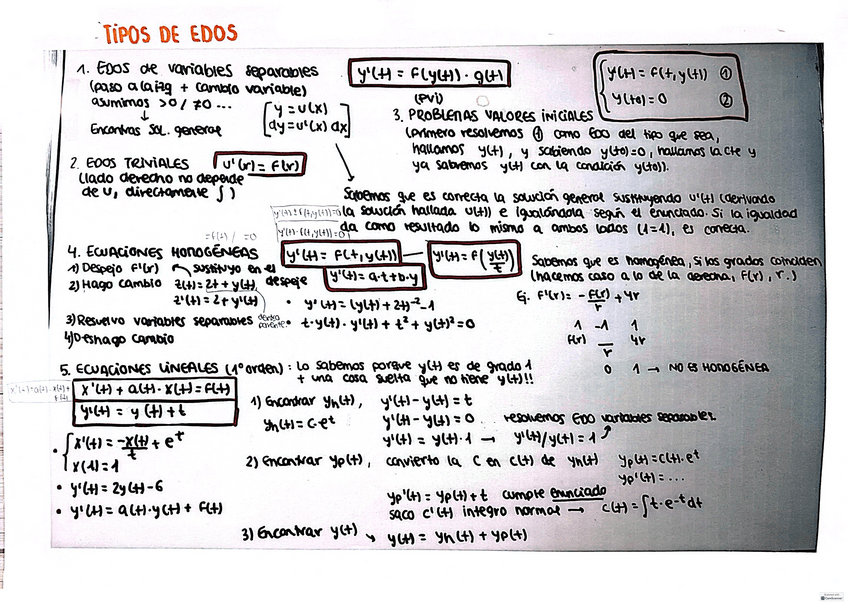 TIPOS DE EDOS
1. EDOS de variables separables
(paso a la izq + cambio variable)
asumimos >0 / ≠0 ...
↓
Encontras SOL. general
[y = u(x)
dy = u'(x) dx]
y'(t) = f(y(t)) · g(t)
(PVI)
{y'(t) = f(t, y(t)) ①
y(t0) = 0 ②
3. PROBLEMAS VALORES INICIALES
(primero resolvemos ① como EDO del tipo que sea,
hallamos y(t), y sabiendo y(t0)=0, hallamos la cte y
ya sabremos y(t) con la condición y(t0)).
2. EDOS TRIVIALES u'(r) = f(r)
(lado derecho no depende
de u, directamente ∫)
Sabemos que es correcta la solución general sustituyendo u'(t) (derivando
la solución hallada u(t)) e igualándola según el enunciado. Si la igualdad
da como resultado lo mismo a ambos lados (1=1), es correcta.
y'(t) ± f(t, y(t)) = 0
y'(t) · f(t, y(t)) = 0
4. ECUACIONES HOMOGÉNEAS
y'(t) = f(t, y(t)) — y'(t) = f(y(t)/t)
y'(t) = a·t + b·y
1) Despejo f'(r) sustituyo en el despeje
2) Hago cambio z(t) = 2t + y(t)
z'(t) = 2 + y'(t)
3) Resuelvo variables separables
4) Deshago cambio
• y'(t) = (y(t) + 2t)⁻² - 1
• t·y(t)·y'(t) + t² + y(t)² = 0
Sabemos que es homogénea, si los grados coinciden
(hacemos caso a lo de la derecha, f(r), r.)
Ej: f'(r) = - f(r)/r + 4r
1 -1 1
f(r) / r 4r
0 1 → NO ES HOMOGÉNEA
5. ECUACIONES LINEALES (1º orden): Lo sabemos porque y(t) es de grado 1
+ una cosa suelta que no tiene y(t)!!
x'(t) + a(t) · x(t) = f(t)
y'(t) = y(t) + t
• {x'(t) = -x(t)/t + eᵗ
x(1) = 1
• y'(t) = 2y(t) - 6
• y'(t) = a(t)·y(t) + f(t)
1) Encontrar yh(t), y'(t) - y(t) = t
yh(t) = C·eᵗ y'(t) - y(t) = 0 resolvemos EDO variables separables
y'(t) = y(t)·1 → y'(t)/y(t) = 1
2) Encontrar yp(t), convierto la C en C(t) de yh(t) yp(t) = C(t)·eᵗ
yp'(t) = ...
yp'(t) = yp(t) + t cumple enunciado
saco c'(t) integro normal → C(t) = ∫t·e⁻ᵗ dt
3) Encontrar y(t) → y(t) = yh(t) + yp(t)